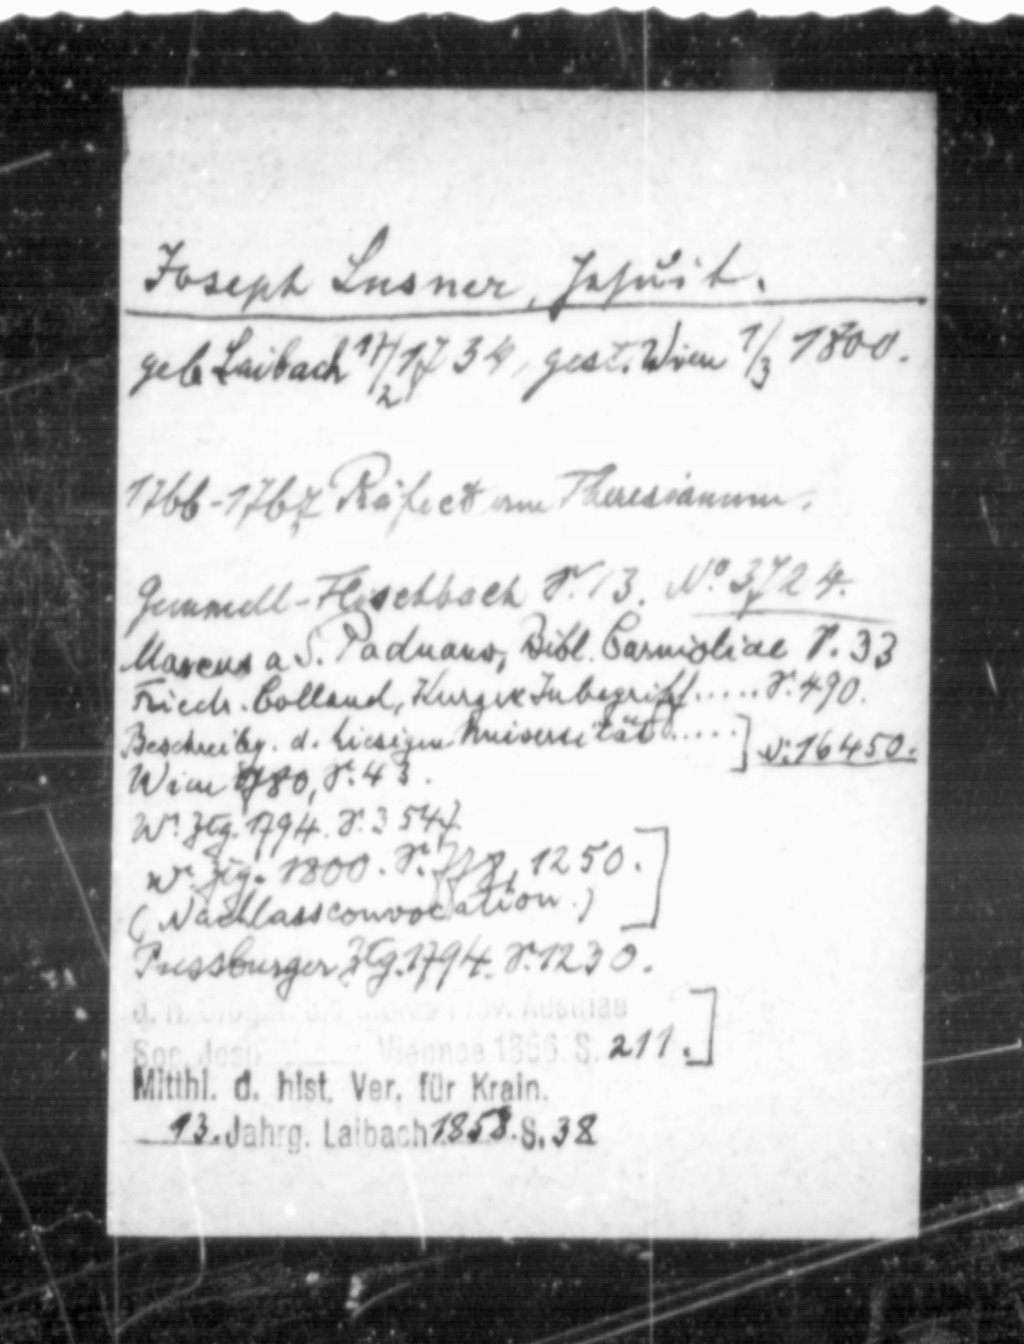 Joseph Lusner, Jesuit.
geb Laibach 17/2 1734, gest. Wien 1/3 1800.
1766-1767 Präfect am Theresianum.
Gemmell-Flischbach S. 13. No 3724.
Marcus a S. Paduano, Bibl. Carnioliae S. 33
Friedr. Colland, Kurzer Inbegriff..... S. 490.
Beschreibg. d. hiesigen Universität.....] N. 16450.
Wien 1780, S. 43.
Wr. Ztg. 1794. S. 3547
Wr. Ztg. 1800. S. 1250.
(Nachlassconvocation.)
Pressburger Ztg. 1794. S. 1230.
Prov. Austriae
Soc. Jesu Viennae 1856 S. 211.]
Mitthl. d. hist. Ver. für Krain.
13. Jahrg. Laibach 1858. S. 38